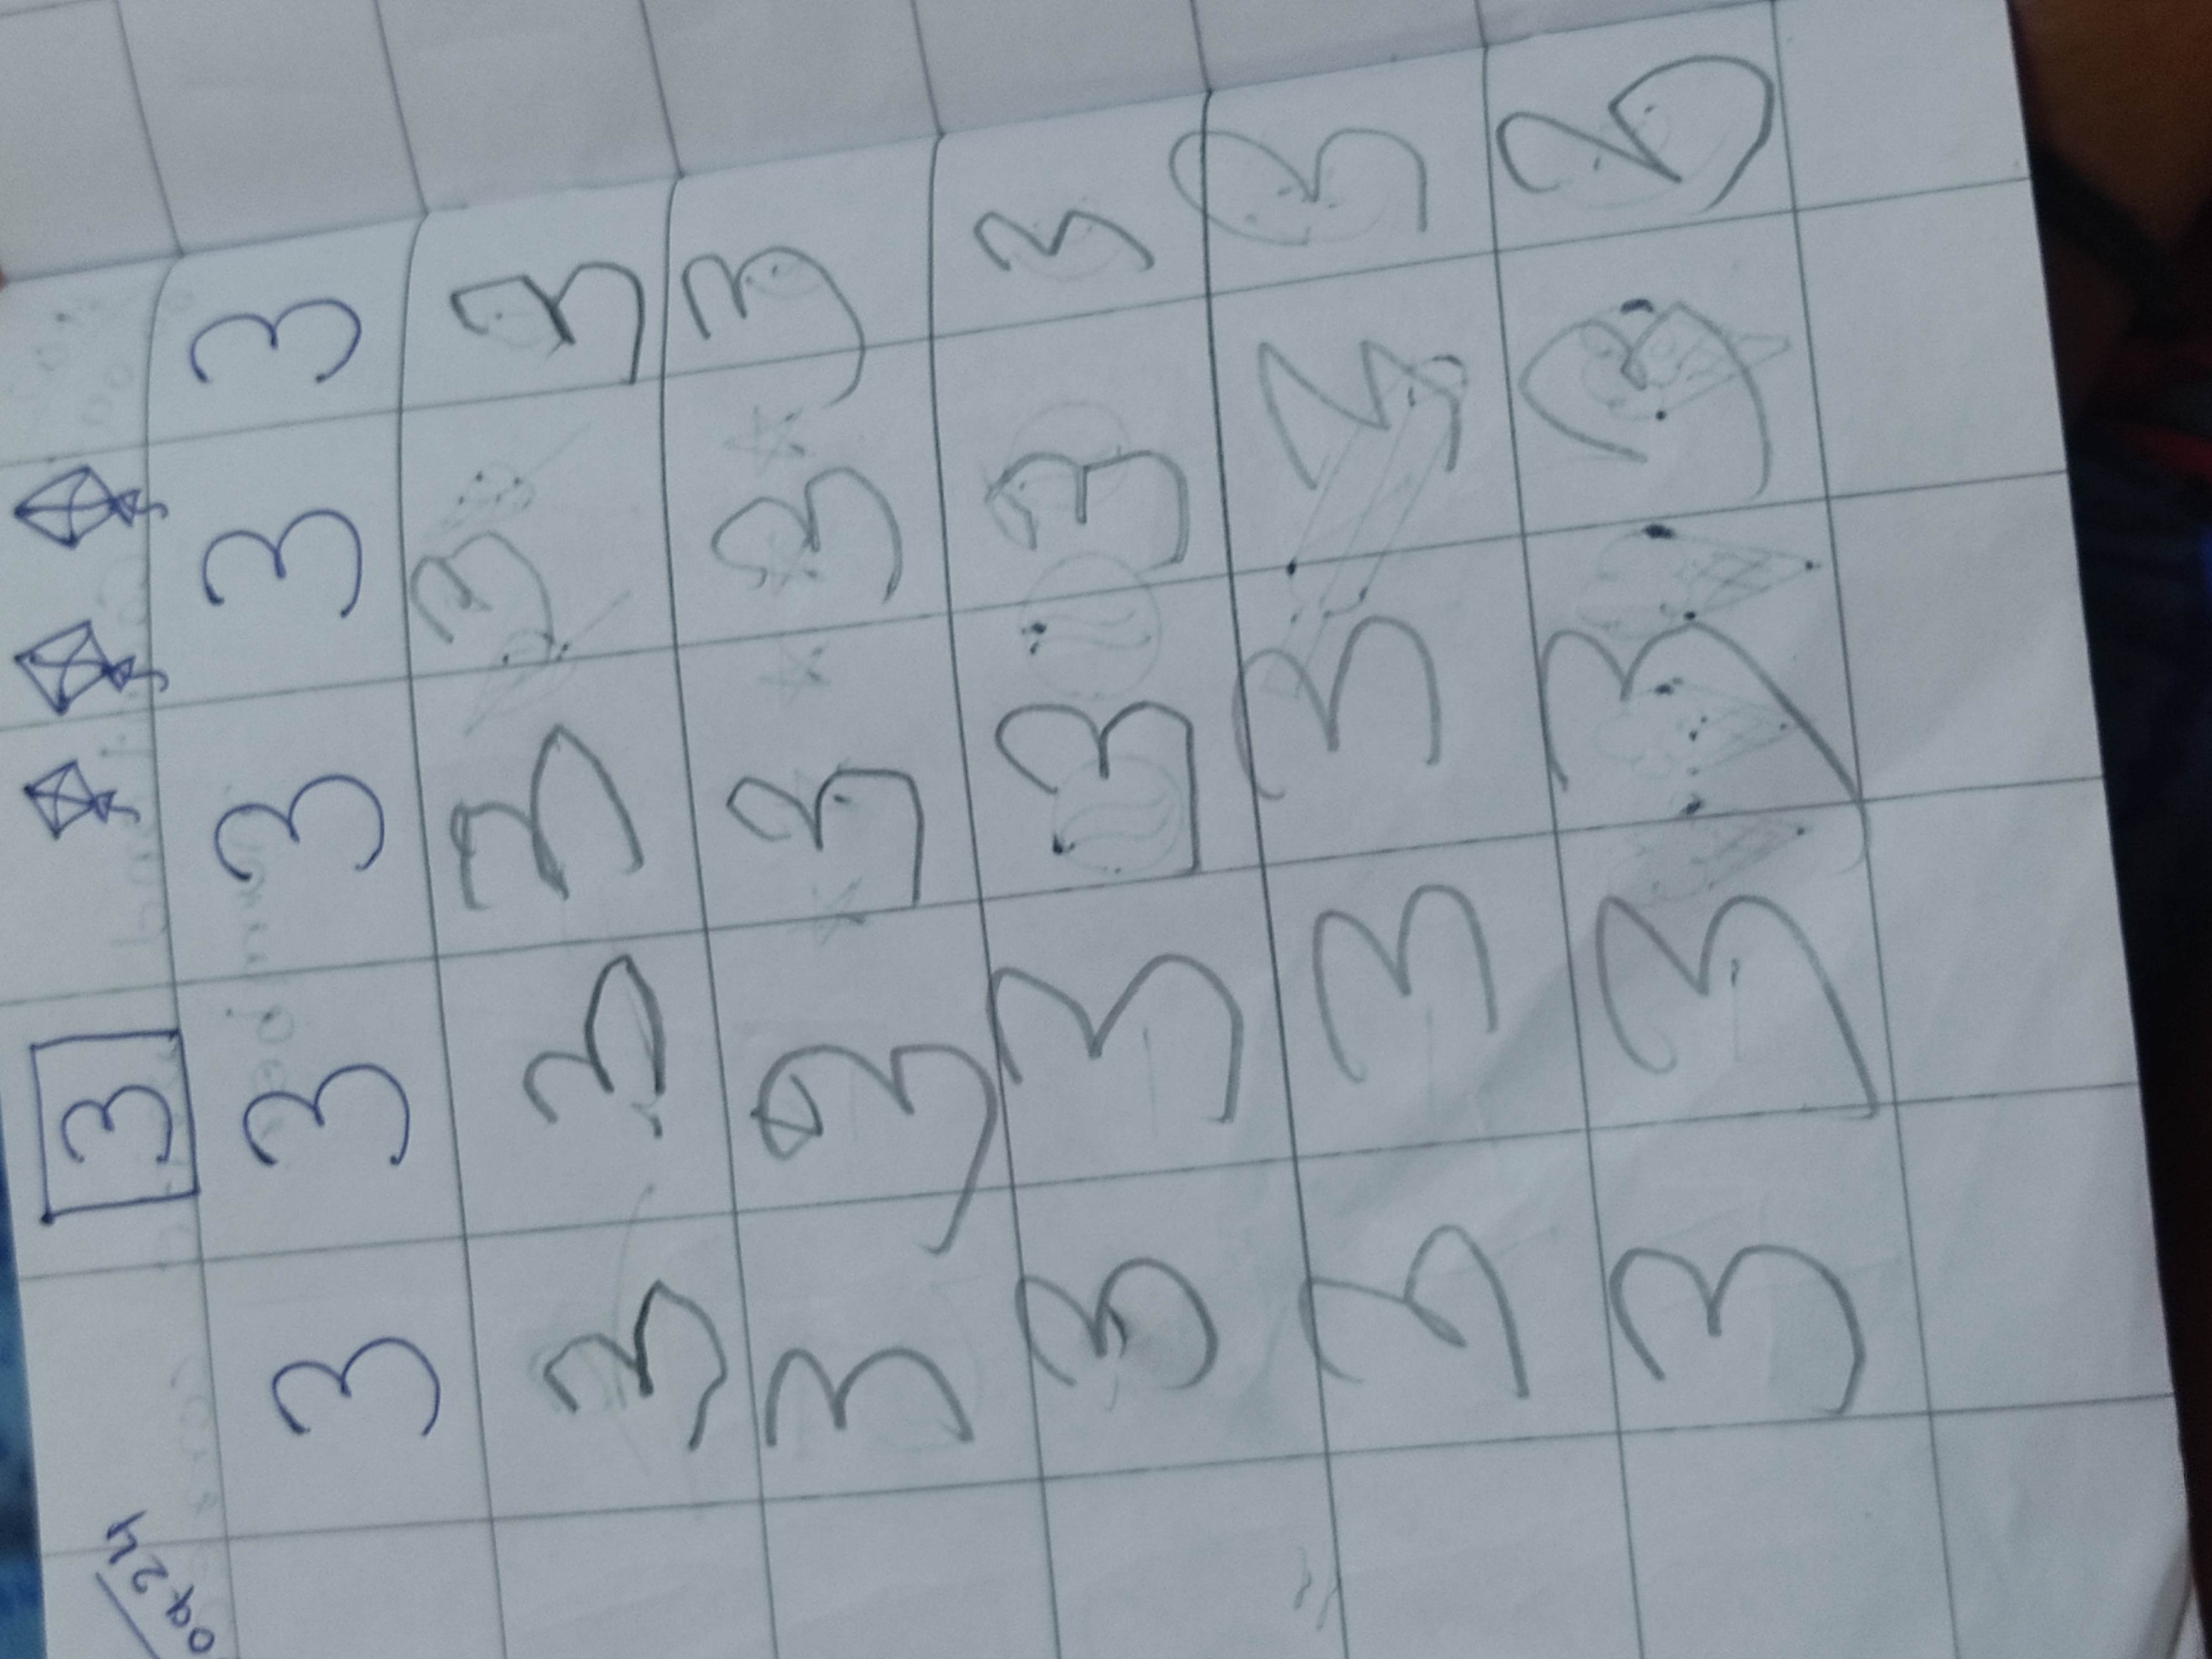 09 24
3
3 3 3 3 3
3 3 3 3 3
3 3 3 3 3
3 3 3 3 3
3 3 3 3 3
3 3 3 3 3